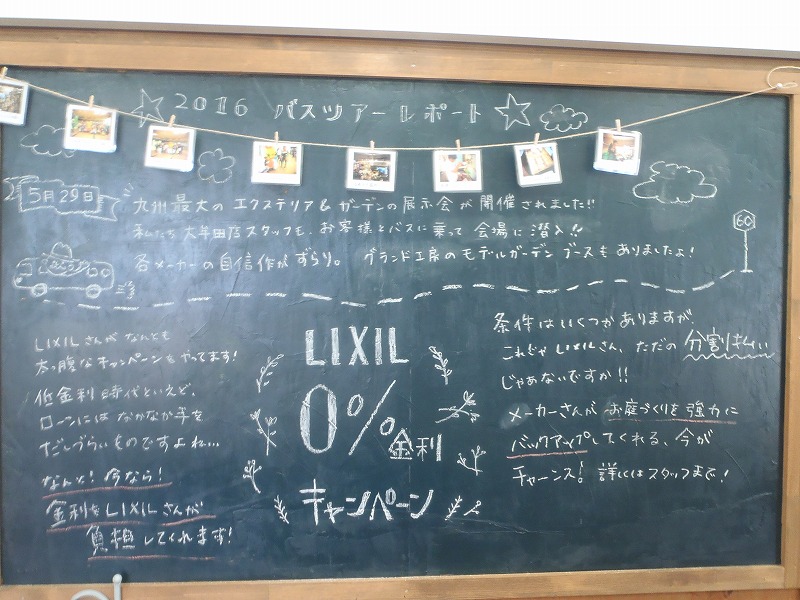 2016 バスツアーレポート
5月29日
九州最大のエクステリア&ガーデンの展示会が開催されました!!
私たち大牟田店スタッフも、お客様とバスに乗って会場に潜入!!
各メーカーの自信作がずらり。 グランド工房のモデルガーデンブースもありましたよ!
60
LIXILさんがなんとも
太っ腹なキャンペーンをやってます!
低金利時代といえど、
ローンにはなかなか手を
だしづらいものですよね…
なんと!今なら!
金利をLIXILさんが
負担してくれます!
LIXIL
0%金利
キャンペーン
条件はいくつかありますが
これじゃLIXILさん、ただの分割払い
じゃあないですか!!
メーカーさんがお庭づくりを強力に
バックアップしてくれる、今が
チャーンス!詳しくはスタッフまで!